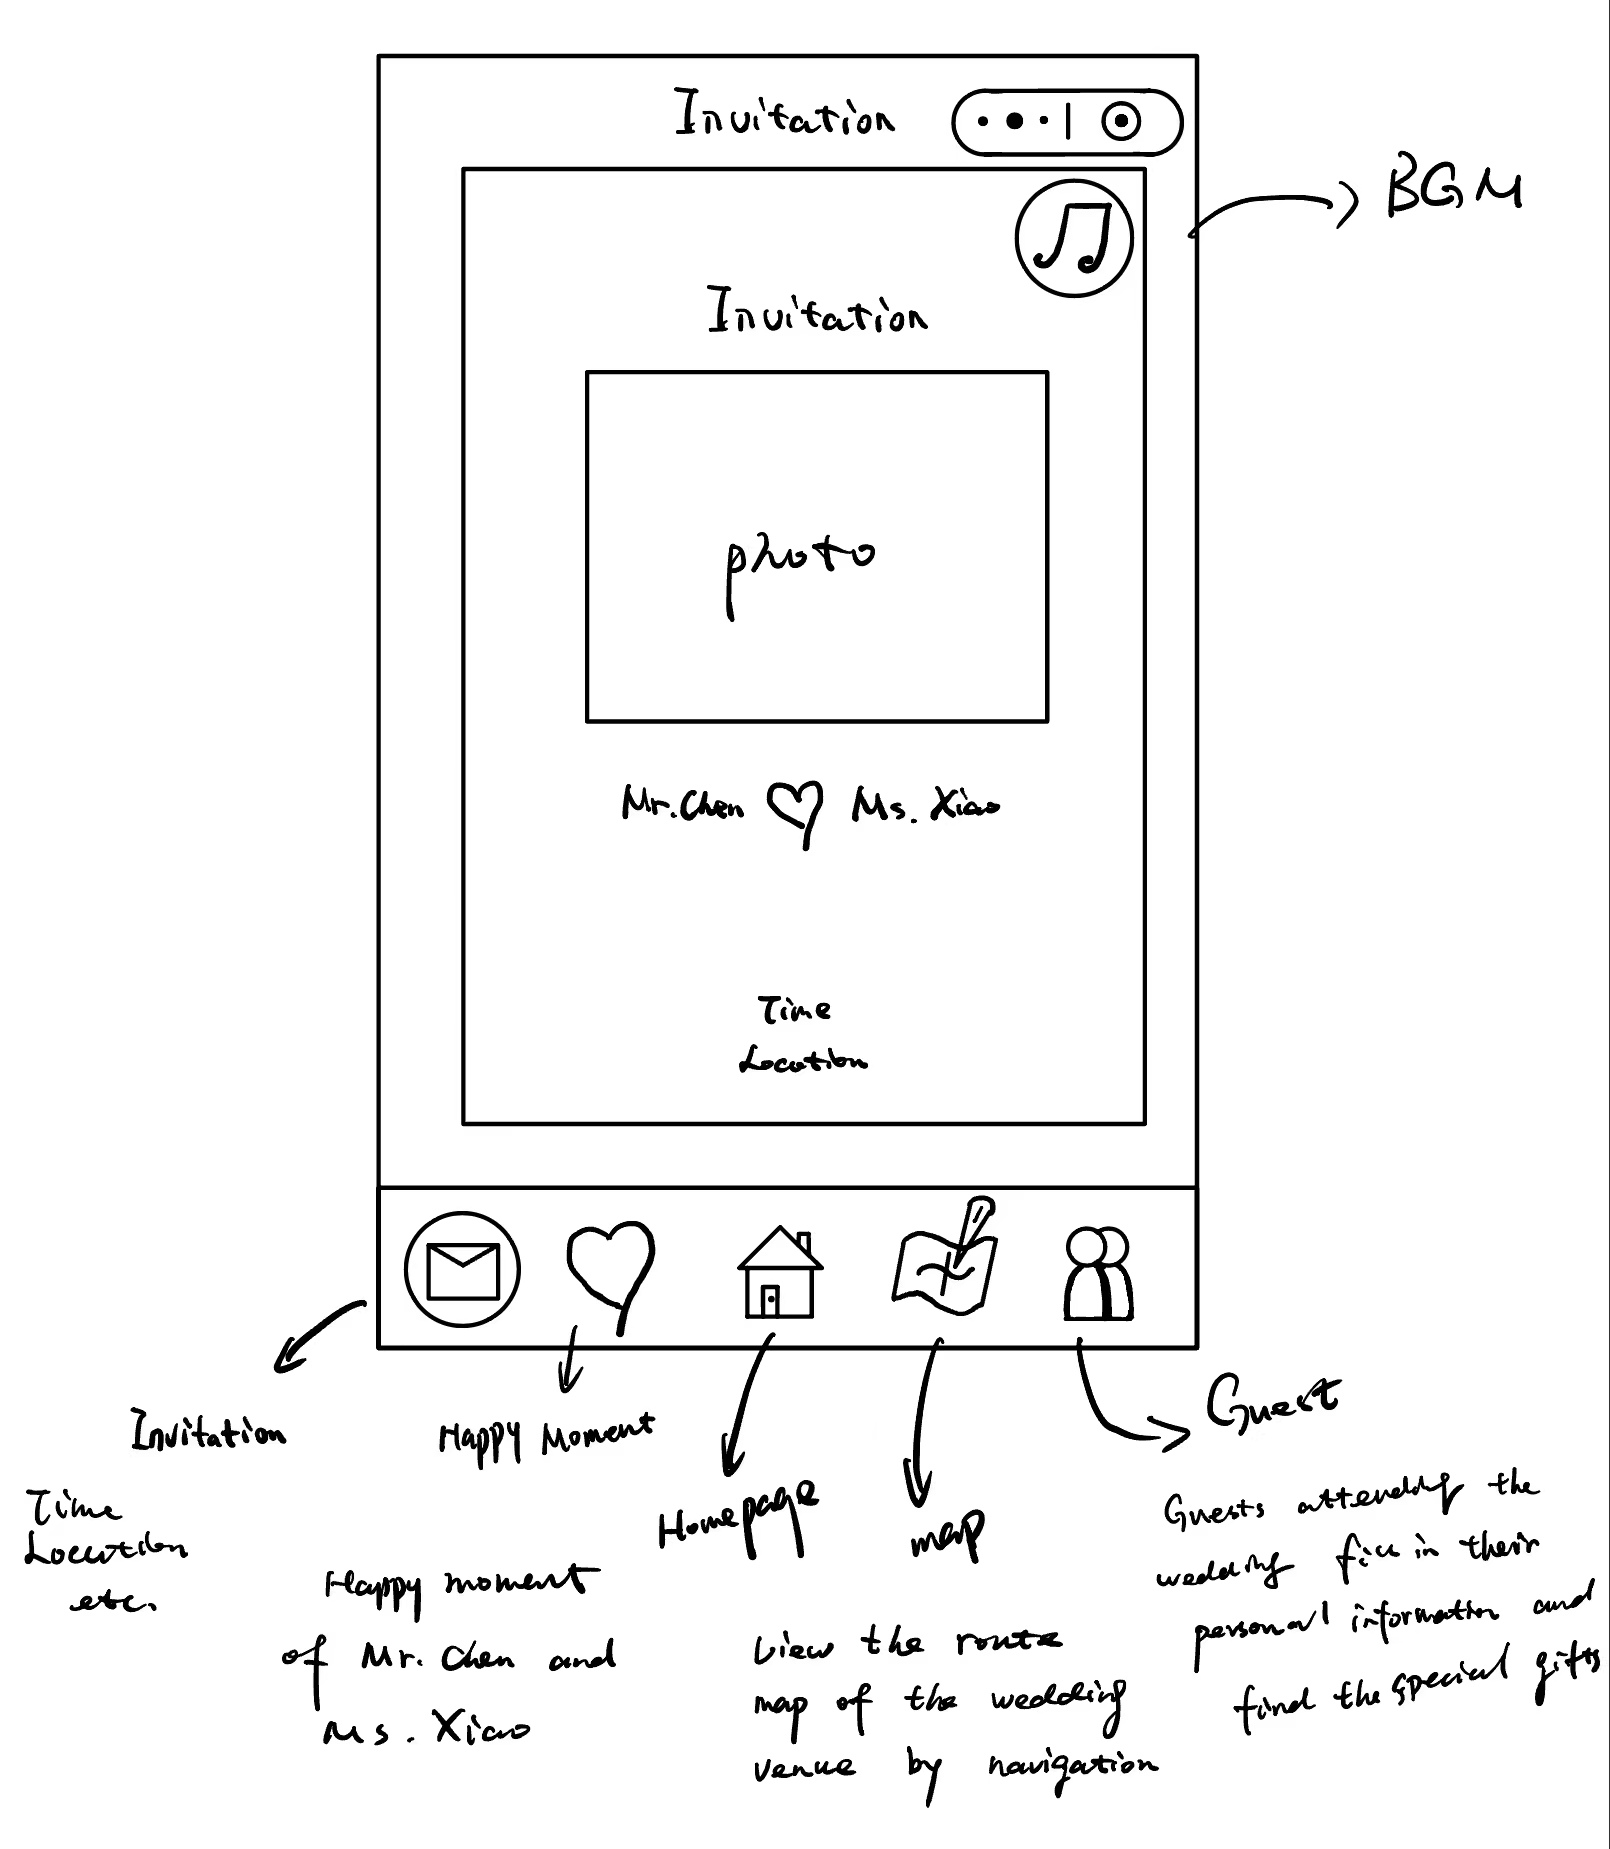 Invitation
BGM
Invitation
photo
Mr. Chen Ms. Xiao
Time
Location
Invitation
Time
Location
etc.
Happy Moment
Happy moment
of Mr. Chen and
Ms. Xiao
Homepage
map
View the route
map of the wedding
venue by navigation
Guest
Guests attending the
wedding fill in their
personal information and
find the special gifts